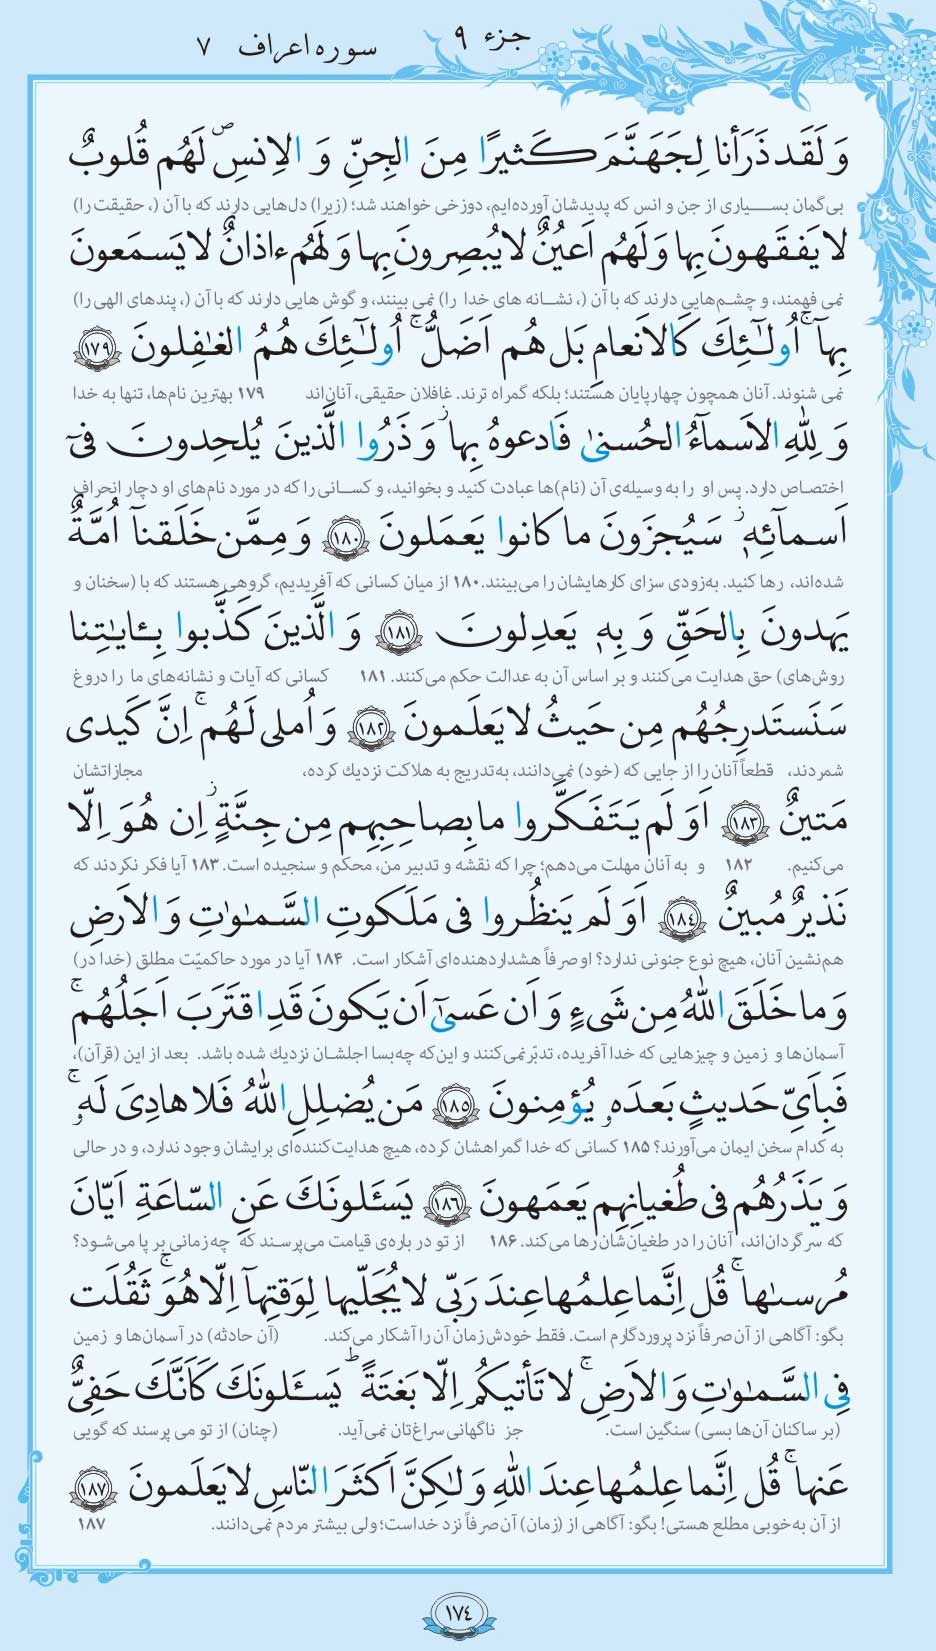 جزء ۹
سوره اعراف ۷
وَ لَقَد ذَرَأنا لِجَهَنَّمَ كَثيرًا مِنَ الجِنِّ وَ الاِنسِ ۖ لَهُم قُلوبٌ
بی‌گمان بسیاری از جن و انس که پدیدشان آورده‌ایم، دوزخی خواهند شد؛ (زیرا) دل‌هایی دارند که با آن (، حقیقت را)
لا يَفقَهونَ بِها وَ لَهُم اَعيُنٌ لا يُبصِرونَ بِها وَ لَهُم ءاذانٌ لا يَسمَعونَ
نمی فهمند، و چشم‌هایی دارند که با آن (، نشانه های خدا را) نمی بینند، و گوش هایی دارند که با آن (، پندهای الهی را)
بِهآ ۚ اُولـٰٓئِكَ كَالاَنعامِ بَل هُم اَضَلُّ ۚ اُولـٰٓئِكَ هُمُ الغـٰفِلونَ ﴿١٧٩﴾
نمی شنوند. آنان همچون چهارپایان هستند؛ بلکه گمراه ترند. غافلان حقیقی، آنان‌اند ۱۷۹ بهترین نام‌ها، تنها به خدا
وَ لِلّٰهِ الاَسمآءُ الحُسنىٰ فَادعوهُ بِها ۖ وَ ذَرُوا الَّذينَ يُلحِدونَ فىٓ
اختصاص دارد. پس او را به وسیله‌ی آن (نام)ها عبادت کنید و بخوانید، و کسانی را که در مورد نام‌های او دچار انحراف
اَسمآئِهٖ ۚ سَيُجزَونَ ما كانوا يَعمَلونَ ﴿١٨٠﴾ وَ مِمَّن خَلَقنآ اُمَّةٌ
شده‌اند، رها کنید. به‌زودی سزای کارهایشان را می‌بینند. ۱۸۰ از میان کسانی که آفریدیم، گروهی هستند که با (سخنان و
يَهدونَ بِالحَقِّ وَ بِهٖ يَعدِلونَ ﴿١٨١﴾ وَ الَّذينَ كَذَّبوا بِـٔاياتِنا
روش‌های) حق هدایت می‌کنند و بر اساس آن به عدالت حکم می‌کنند. ۱۸۱ کسانی که آیات و نشانه‌های ما را دروغ
سَنَستَدرِجُهُم مِن حَيثُ لا يَعلَمونَ ﴿١٨٢﴾ وَ اُملى لَهُم ۚ اِنَّ كَيدى
شمردند، قطعاً آنان را از جایی که (خود) نمی‌دانند، به‌تدریج به هلاکت نزدیك کرده، مجازاتشان
مَتينٌ ﴿١٨٣﴾ اَوَ لَم يَتَفَكَّروا ما بِصاحِبِهِم مِن جِنَّةٍ ۚ اِن هُوَ اِلّا
می‌کنیم. ۱۸۲ و به آنان مهلت می‌دهم؛ چرا که نقشه و تدبیر من، محکم و سنجیده است. ۱۸۳ آیا فکر نکردند که
نَذيرٌ مُبينٌ ﴿١٨٤﴾ اَوَ لَم يَنظُروا فى مَلَكوتِ السَّمـٰوٰتِ وَ الاَرضِ
هم‌نشین آنان، هیچ نوع جنونی ندارد؟ او صرفاً هشداردهنده‌ای آشکار است. ۱۸۴ آیا در مورد حاکمیّت مطلق (خدا در)
وَ ما خَلَقَ اللّٰهُ مِن شَىءٍ وَ اَن عَسىٰٓ اَن يَكونَ قَدِ اقتَرَبَ اَجَلُهُم ۚ
آسمان‌ها و زمین و چیزهایی که خدا آفریده، تدبّر نمی‌کنند و این‌که چه‌بسا اجلشان نزدیك شده باشد. بعد از این (قرآن)،
فَبِاَىِّ حَديثٍ بَعدَهٗ يُؤمِنونَ ﴿١٨٥﴾ مَن يُضلِلِ اللّٰهُ فَلا هادِىَ لَهٗ ۚ
به کدام سخن ایمان می‌آورند؟ ۱۸۵ کسانی که خدا گمراهشان کرده، هیچ هدایت‌کننده‌ای برایشان وجود ندارد، و در حالی
وَ يَذَرُهُم فى طُغيانِهِم يَعمَهونَ ﴿١٨٦﴾ يَسـَٔلونَكَ عَنِ السّاعَةِ اَيّانَ
که سرگردان‌اند، آنان را در طغیان‌شان رها می‌کند. ۱۸۶ از تو در باره‌ی قیامت می‌پرسند که چه زمانی بر پا می‌شود؟
مُرسىٰها ۖ قُل اِنَّما عِلمُها عِندَ رَبّى لا يُجَلّيها لِوَقتِهآ اِلّا هُوَ ۚ ثَقُلَت
بگو: آگاهی از آن صرفاً نزد پروردگارم است. فقط خودش زمان آن را آشکار می‌کند. (آن حادثه) در آسمان‌ها و زمین
فِى السَّمـٰوٰتِ وَ الاَرضِ ۚ لا تَأتيكُم اِلّا بَغتَةً ؕ يَسـَٔلونَكَ كَاَنَّكَ حَفِىٌّ
(بر ساکنان آن‌ها بسی) سنگین است. جز ناگهانی سراغ‌تان نمی‌آید. (چنان) از تو می پرسند که گویی
عَنها ۖ قُل اِنَّما عِلمُها عِندَ اللّٰهِ وَ لـٰكِنَّ اَكثَرَ النّاسِ لا يَعلَمونَ ﴿١٨٧﴾
از آن به‌خوبی مطلع هستی! بگو: آگاهی از (زمان) آن صرفاً نزد خداست؛ ولی بیشتر مردم نمی‌دانند. ۱۸۷
١٧٤